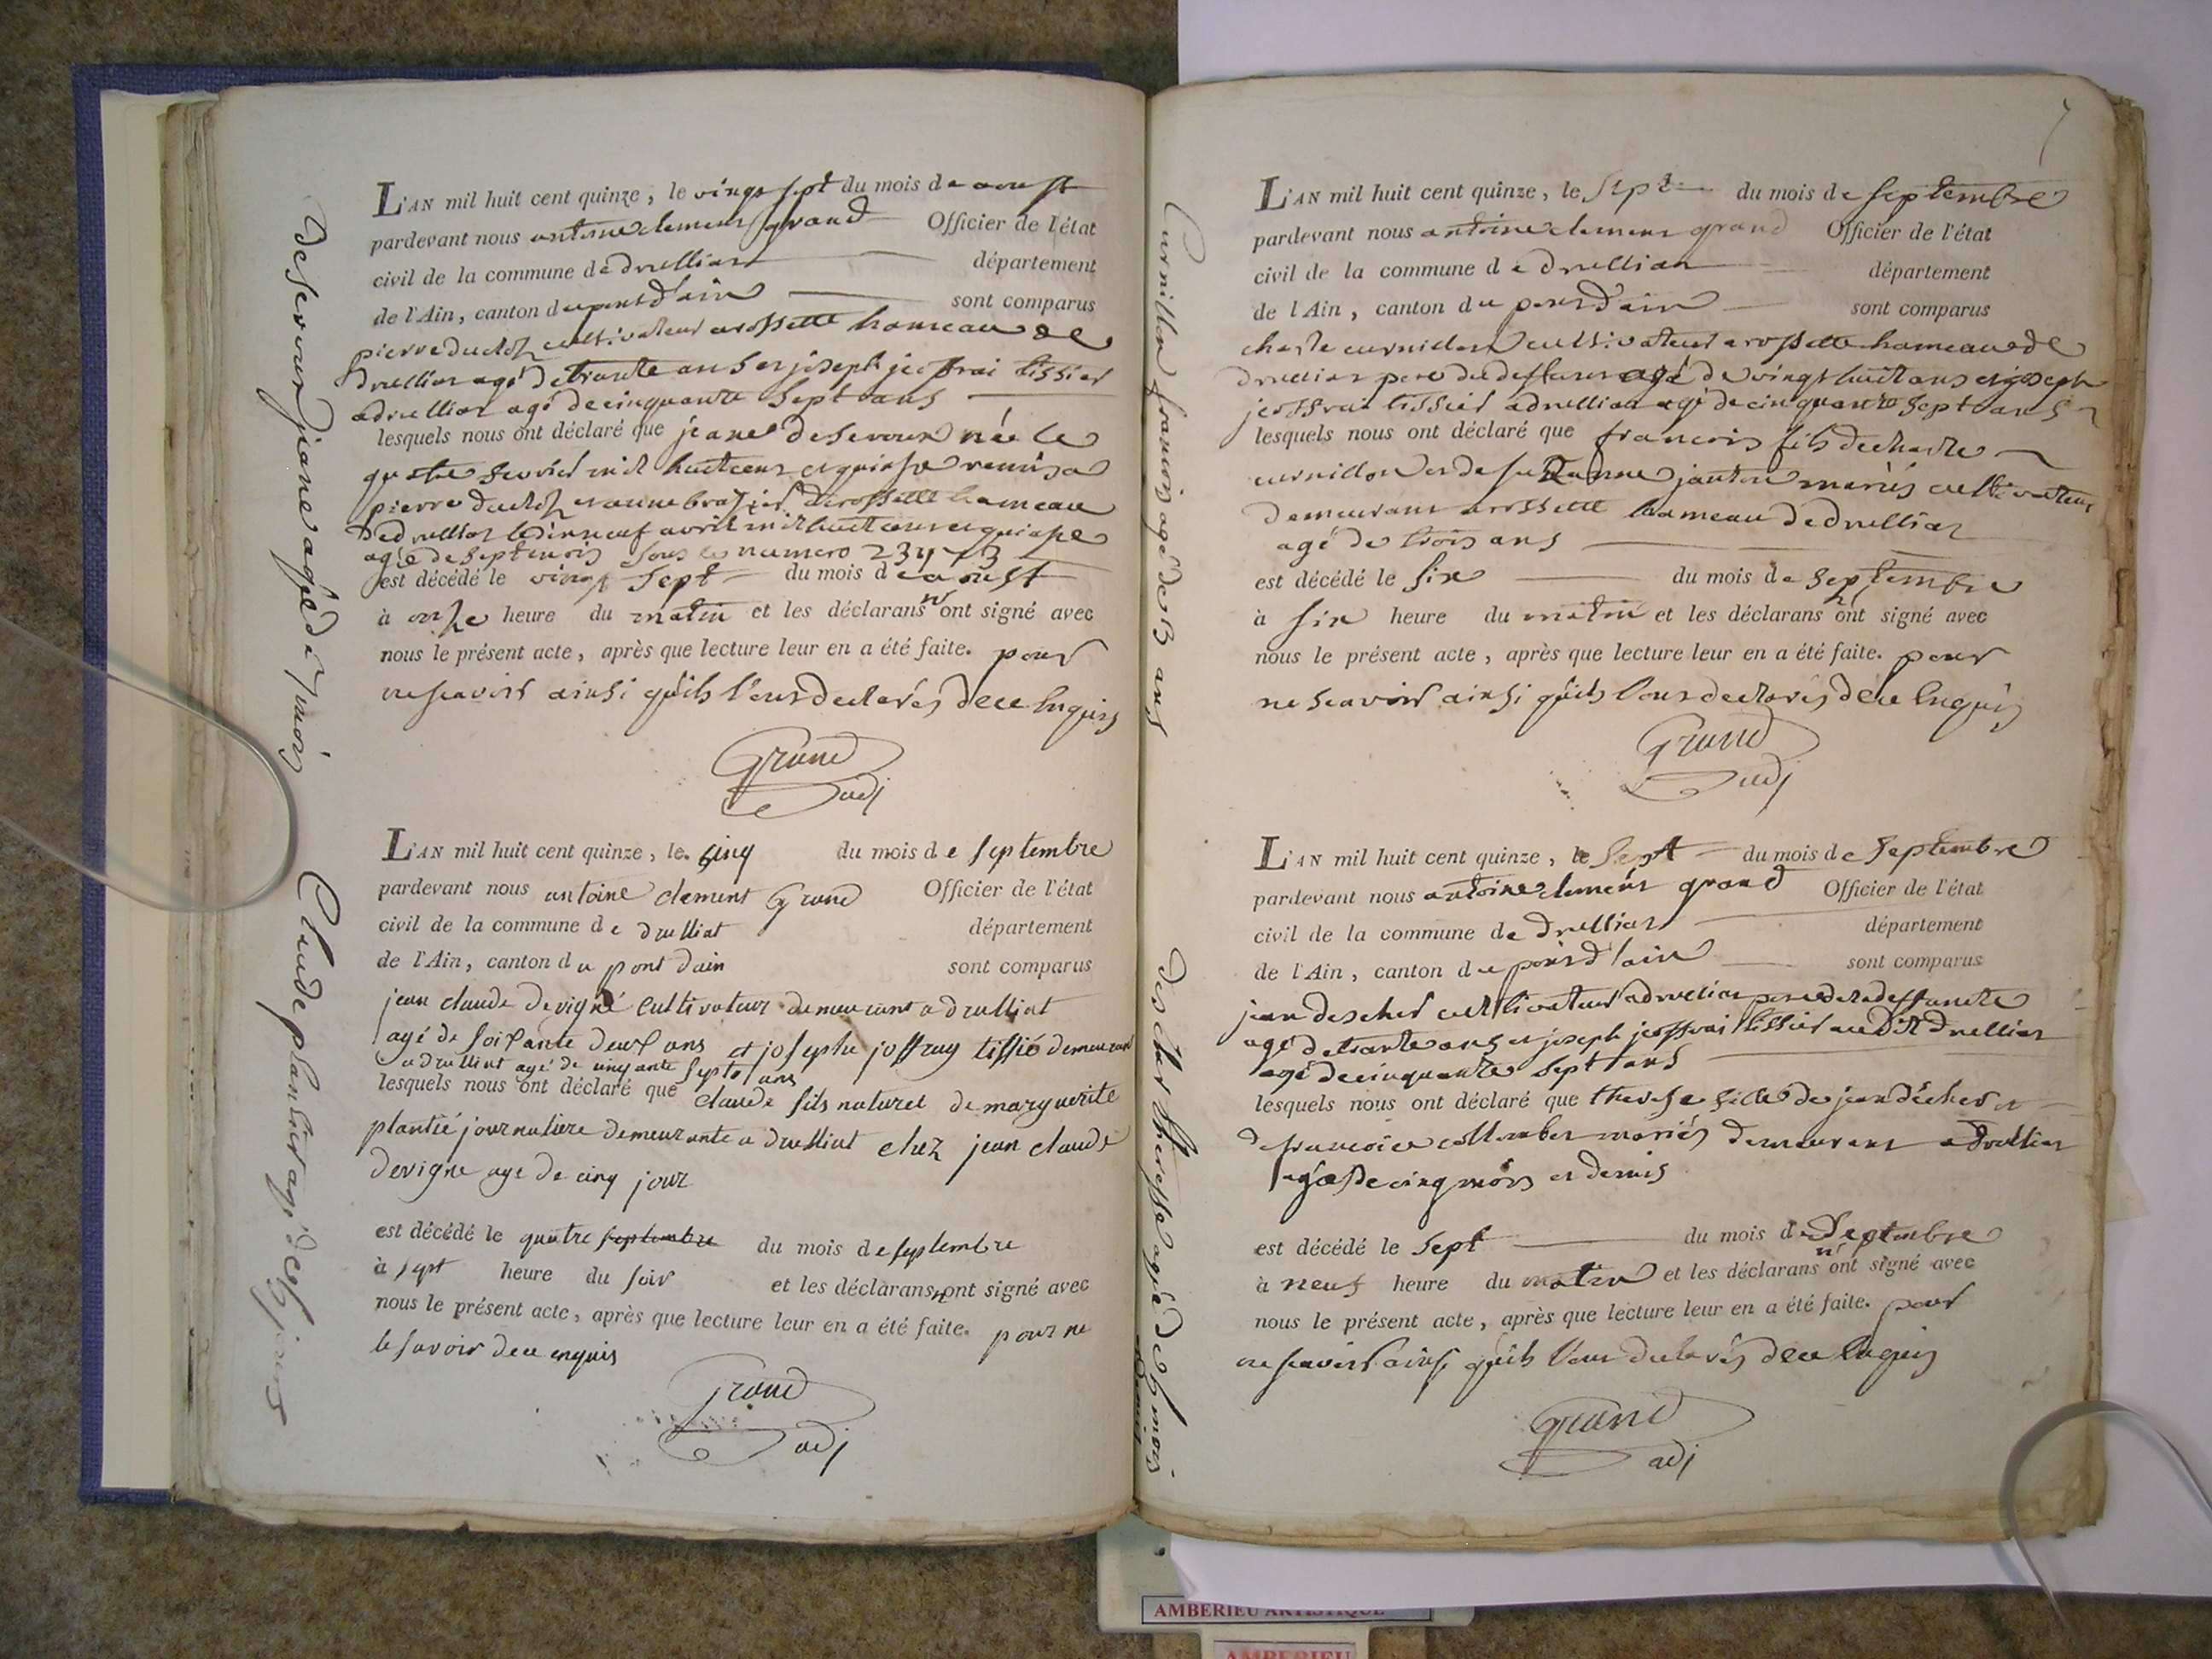 L'AN mil huit cent quinze, le vingt sept du mois de aoust
pardevant nous antoine clement grand Officier de l'état
civil de la commune de druilliat département
de l'Ain, canton du pont d'ain sont comparus
pierre duclos cultivateur a rossette hameau de
druillias agé de trante ans et joseph jeoffrai tissier
a druillias agé de cinquante sept ans
lesquels nous ont déclaré que jeane deservoux née le
quatre fevrier mil huit cent et quinse remisa
pierre duclos et anne brasier de rossette hameau
de druillias le dix neuf avril mil huit cent et quinse
agée de sept mois sous le numero
est décédé le vingt sept du mois de aoust
à onze heure du matin et les déclarans n'ont signé avec
nous le présent acte, après que lecture leur en a été faite. pour
ne scavoir ainsi qu'ils l'ont declarés de ce enquis
Grand
adj
deservoux jeane agée de 7 mois
L'AN mil huit cent quinze, le cinq du mois de septembre
pardevant nous antoine clement Grand Officier de l'état
civil de la commune de druilliat département
de l'Ain, canton du pont dain sont comparus
jean claude devigne cultivateur demeurant a druilliat
agé de soisante deux ans et josephe joffray tissié demeurant
a druilliat agé de cinquante septe ans
lesquels nous ont déclaré que claude fils naturel de marguerite
plantié journaliere demeurante a druilliat chez jean claude
devigne age de cinq jour
est décédé le quatre septembre du mois de septembre
à sept heure du soir et les déclarans n ont signé avec
nous le présent acte, après que lecture leur en a été faite. pour ne
le savoir de ce enquis
Grand
adj
Claude plantier agé de 5 jours
7
L'AN mil huit cent quinze, le sept du mois de septembre
pardevant nous antoine clement grand Officier de l'état
civil de la commune de druillias département
de l'Ain, canton du pont d'ain sont comparus
charle curnillon cultivateur a rossette hameau de
druillias pere du deffunt agé de vingt huit ans et joseph
jeoffrai tissier a druillias agé de cinquante sept ans
lesquels nous ont déclaré que francois fils de charle
curnillon et de suzanne janton mariés cultivateur
demeurant a rossette hameau de druillias
agé de trois ans
est décédé le six du mois de septembre
à six heure du matin et les déclarans n'ont signé avec
nous le présent acte, après que lecture leur en a été faite. pour
ne scavoir ainsi qu'ils l'ont declarés de ce enquis
Grand
adj
Curnillon francois agé de 3 ans
L'AN mil huit cent quinze, le sept du mois de septembre
pardevant nous antoine clement grand Officier de l'état
civil de la commune de druillias département
de l'Ain, canton du pont d'ain sont comparus
jean descher cultivateur a druillias pere de la deffuncte
agé de trante ans et joseph jeoffrai tissier au dit druillias
agé de cinquante sept ans
lesquels nous ont déclaré que therese fille de jean décher et
de francoise collomber mariés demeurant a druillias
agée de cinq mois et demis
est décédé le sept du mois de septembre
à neuf heure du matin et les déclarans n'ont signé avec
nous le présent acte, après que lecture leur en a été faite. pour
ne scavoir ainsi qu'ils l'ont declarés de ce enquis
Grand
adj
descher theresse agée de 5 mois
et demis
AMBERIEU ARTISTIQUE
AMBERIEU